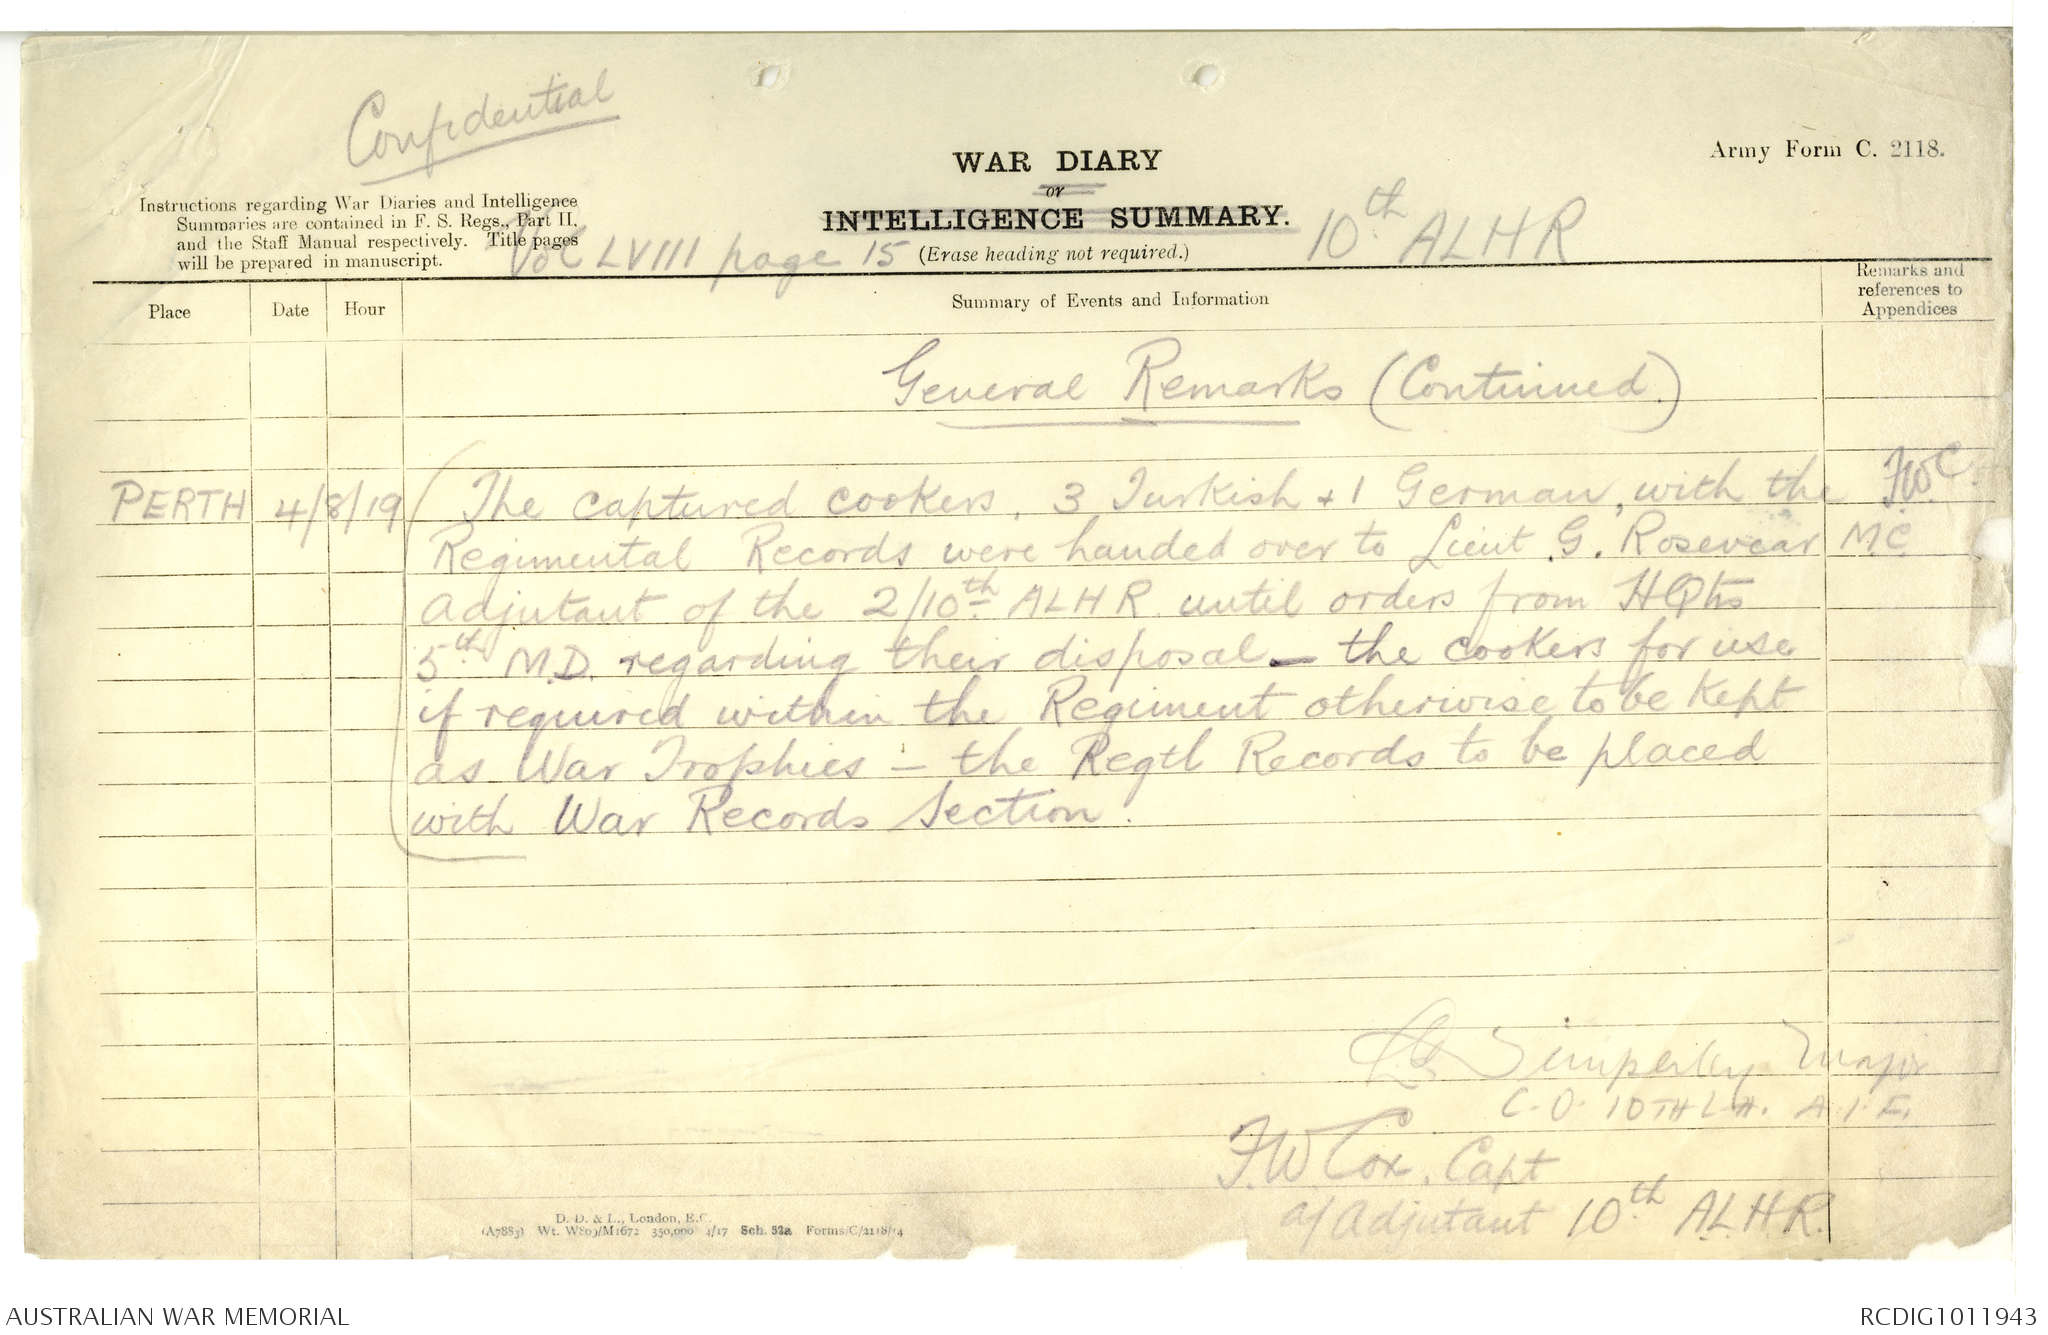 Confidential
Army Form C. 2118.
WAR DIARY
or
INTELLIGENCE SUMMARY.
(Erase heading not required.)
10th ALHR
Instructions regarding War Diaries and Intelligence
Summaries are contained in F. S. Regs., Part II.
and the Staff Manual respectively. Title pages
will be prepared in manuscript.
Vol LVIII page 15
Place
Date
Hour
Summary of Events and Information
Remarks and
references to
Appendices
General Remarks (Continued.)
PERTH 4/8/19 The captured cookers, 3 Turkish + 1 German, with the F.W.C.
Regimental Records were handed over to Lieut G. Rosevear MC
adjutant of the 2/10th ALHR until orders from HQtrs
5th M.D. regarding their disposal – the cookers for use
if required within the Regiment otherwise to be kept
as War Trophies – the Regtl Records to be placed
with War Records Section.
Timperley Major
C.O. 10TH L.H. A.I.F.
F.W. Cox, Capt
a/adjutant 10th A.L.H.R.
D. D. & L., London, E.C.
(A7883) Wt. W809/M1672 350,000 4/17 Sch. 52a Forms/C/2118/14
AUSTRALIAN WAR MEMORIAL
RCDIG1011943